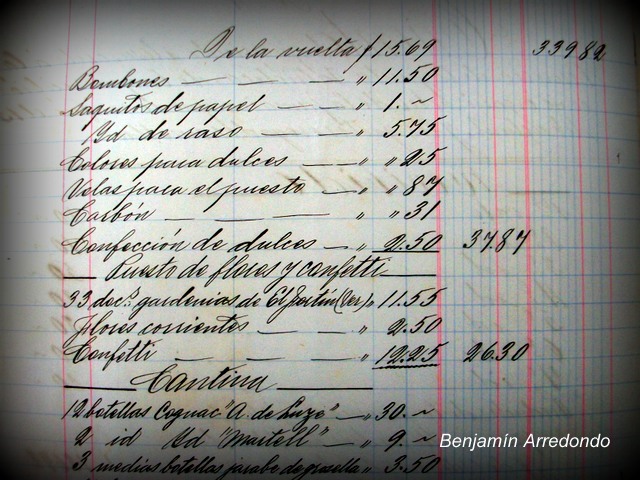 De la vuelta $ 15.69 339 82
Bombones " 11.50
Saquitos de papel " 1.~
Id de raso " 5.75
Colores para dulces " " 25
Velas para el puesto " " 87
Carbón " " 31
Confección de dulces " 2.50 37.87
Puesto de flores y confetti
33 doc.s gardenias de El Fortín (Ver.) " 11.55
Flores corrientes " 2.50
Confetti " 12.25 26.30
Cantina
12 botellas Cognac "A. de Luze" " 30.~
2 id Id "Martell" " 9.~
3 medias botellas jarabe de grosella " 3.50
Benjamín Arredondo